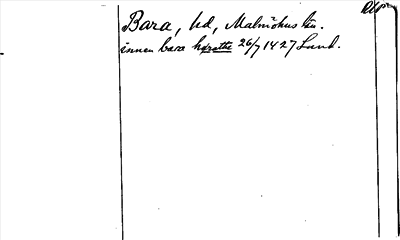 Bara, hd, Malmöhus län.
innen bara hærethe 26/7 1427 Lund.